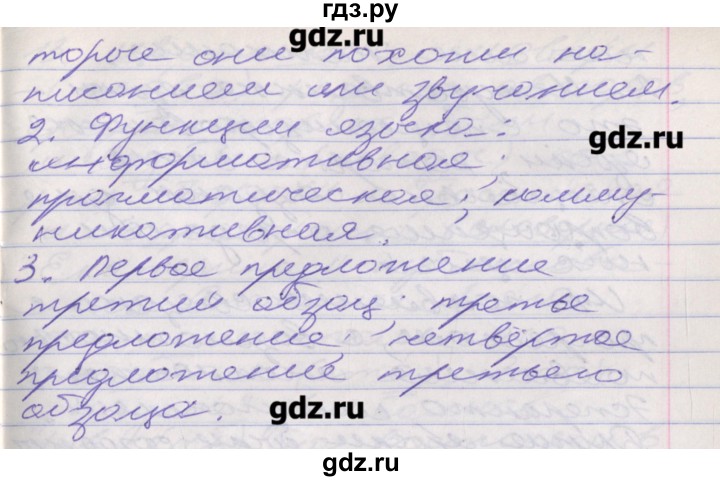 гдз.ру
gdz.ru
торые они похожи на-
писанием или звучанием.
2. Функции языка:
gdz.ru
информативная;
прагматическая; комму-
никативная.
3. Первое предложение
третий абзац; третье
предложение; четвёртое
предложение третьего
абзаца.
gdz.ru
gdz.ru